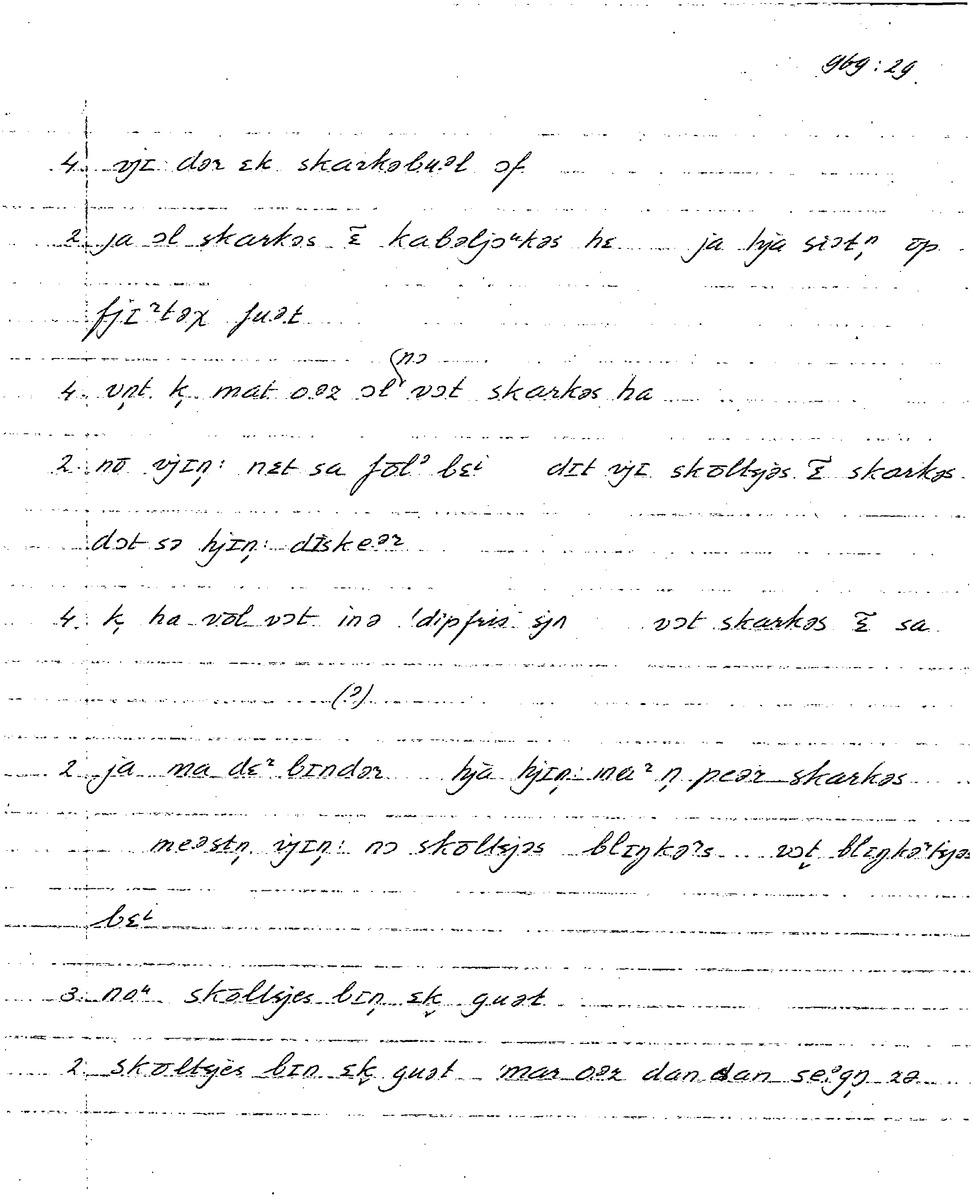 g69:29
4. vjɪ dər ɛk skarkəbu.əl ɔf
2. ja ɔl skarkəs ɛ̄ kabəljəᵘkəs hɛ ja hjà siɔtn̩ ōp
fjɪʳtəχ fuət
(nɔ
4. vn̩t k̩ mat o.ər ɔl vɔt skarkəs ha
2. nō vjɪn̩: nɛt sa fōlᵊ bɛⁱ dɪt vjɪ skōltsjəs ɛ̄ skarkəs
dɔt sɔ hjɪn̩: dīske.ər
4. k̩ ha vōl vɔt inə 'dipfris sjn vɔt skarkəs ɛ̄ sa
(?)
2. ja ma dɛʳ bɪndər hjà hjɪn̩: mɛʳ n̩ peər skarkəs
meəstn̩ vjɪn̩: nɔ skōltsjəs blɪŋkəʳs vɔt̬ blɪŋkəʳtsjəs
bɛⁱ
3. noᵘ skōltsjes bɪn̩ ɛk̬ guət
2. skōltsjès bɪn ɛk̬ guət mar o.ər dan dan se.ᵊgn̩ zə